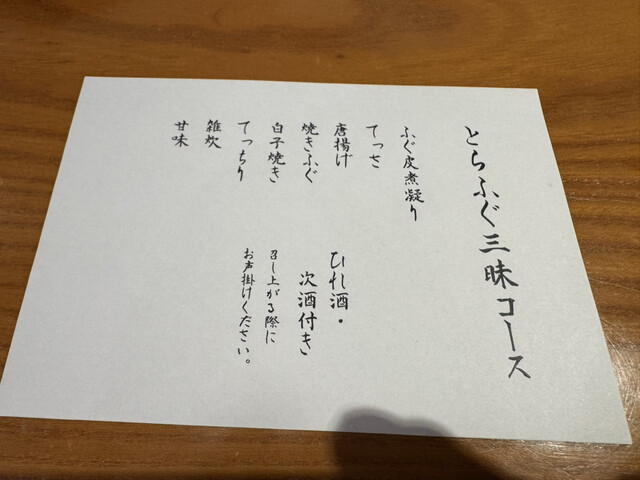 とらふぐ三昧コース
ふぐ皮煮凝り
てっさ
唐揚げ
焼きふぐ
白子焼き
てっちり
雑炊
甘味
ひれ酒・
次酒付き
召し上がる際に
お声掛けください。